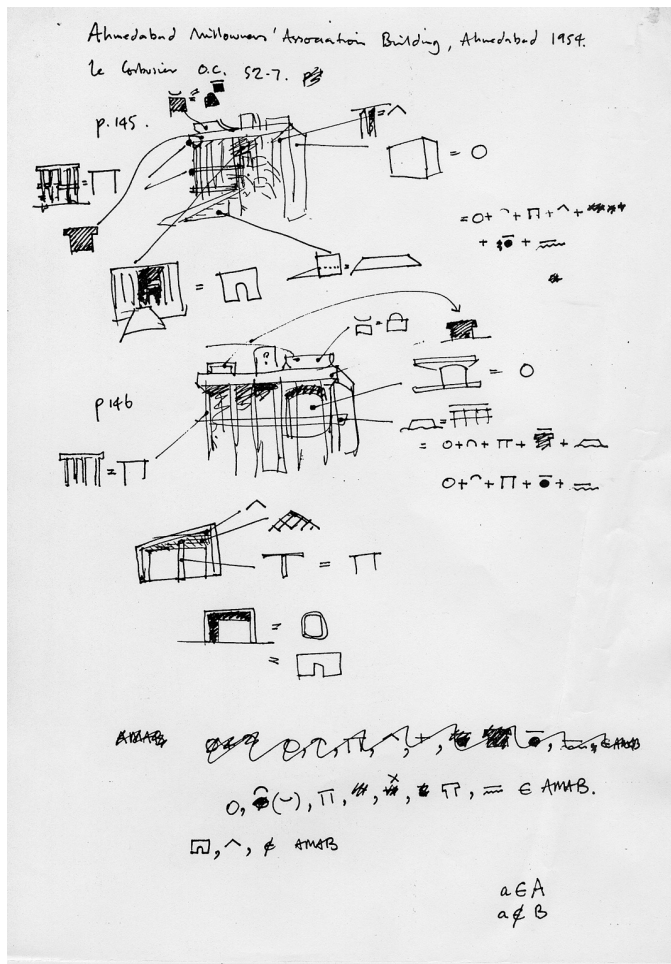 Ahmedabad Millowners' Association Building, Ahmedabad 1954.
Le Corbusier O.C. 52-7.
p.145.
= O
= O + ⌒ + Π + ^ +
+ +
?
p 146
= O
= O + ∩ + Π + +
O + ⌒ + Π + +
=
=
=
AMAB
∈ AMAB
O, (⌣), Π, ∈ AMAB.
, ^, ∉ AMAB
a ∈ A
a ∉ B